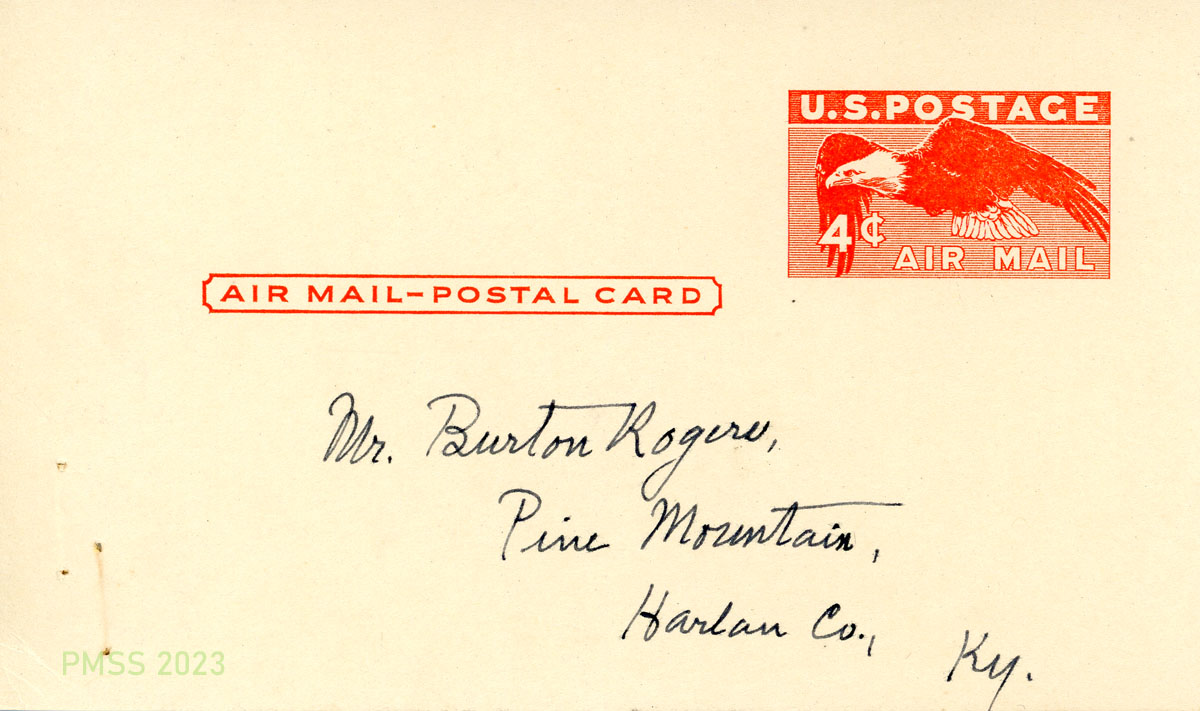 U.S.POSTAGE
4¢
AIR MAIL
AIR MAIL–POSTAL CARD
Mr. Burton Rogers,
Pine Mountain,
Harlan Co.,
Ky.
PMSS 2023